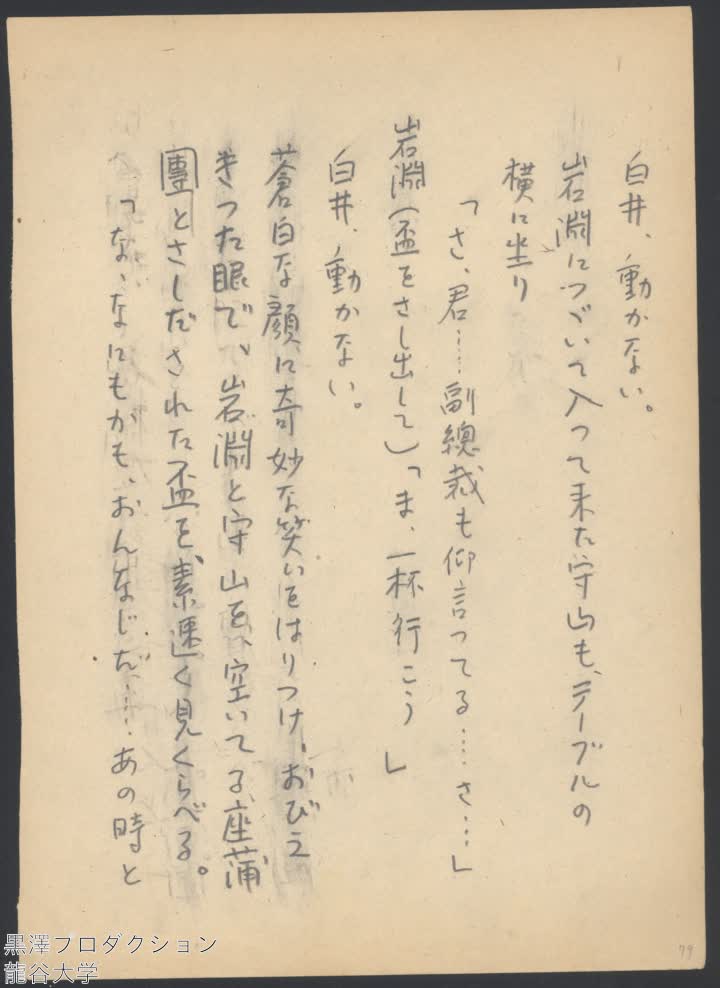 白井、動かない。
岩淵につゞいて入つて来た守山も、テーブルの
横に坐り
「さ、君……副總裁も仰言つてる……さ……」
岩淵(盃をさし出して)「ま、一杯行こう」
白井、動かない。
蒼白な顔に奇妙な笑いをはりつけ、おびえ
きつた眼で、岩淵と守山を、空いてる座蒲
團とさしだされた盃を、素速く見くらべる。
「な、なにもがも、おんなじだ……あの時と
79
黒澤プロダクション
龍谷大学